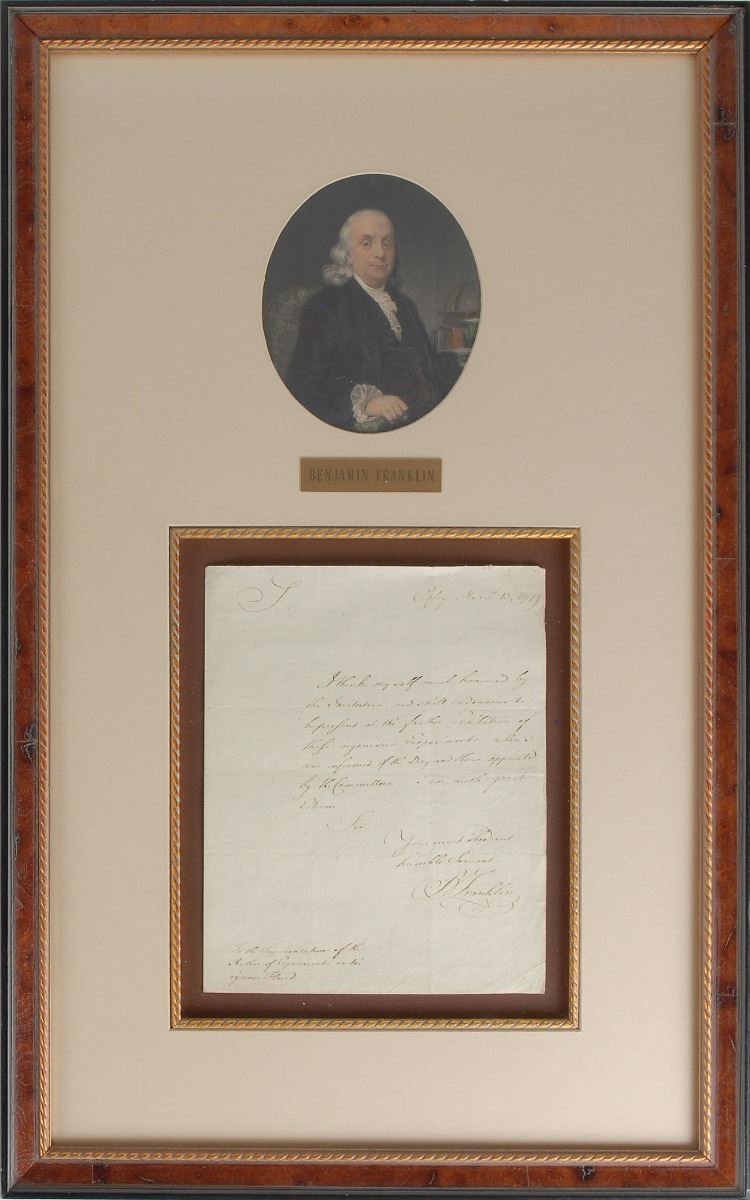 BENJAMIN FRANKLIN
Sir
Passy, March 13. 1779
I think myself much honoured by
the Invitation and shall endeavour to
be present at the farther Exhibition of
those ingenious Experiments, when I
am informed of the Day and Hour appointed
by the Committee. I am, with great
Esteem
Sir
Your most obedient
humble Servant
B Franklin
To the Representative of the
Author of Experiments on the
igneous Fluid